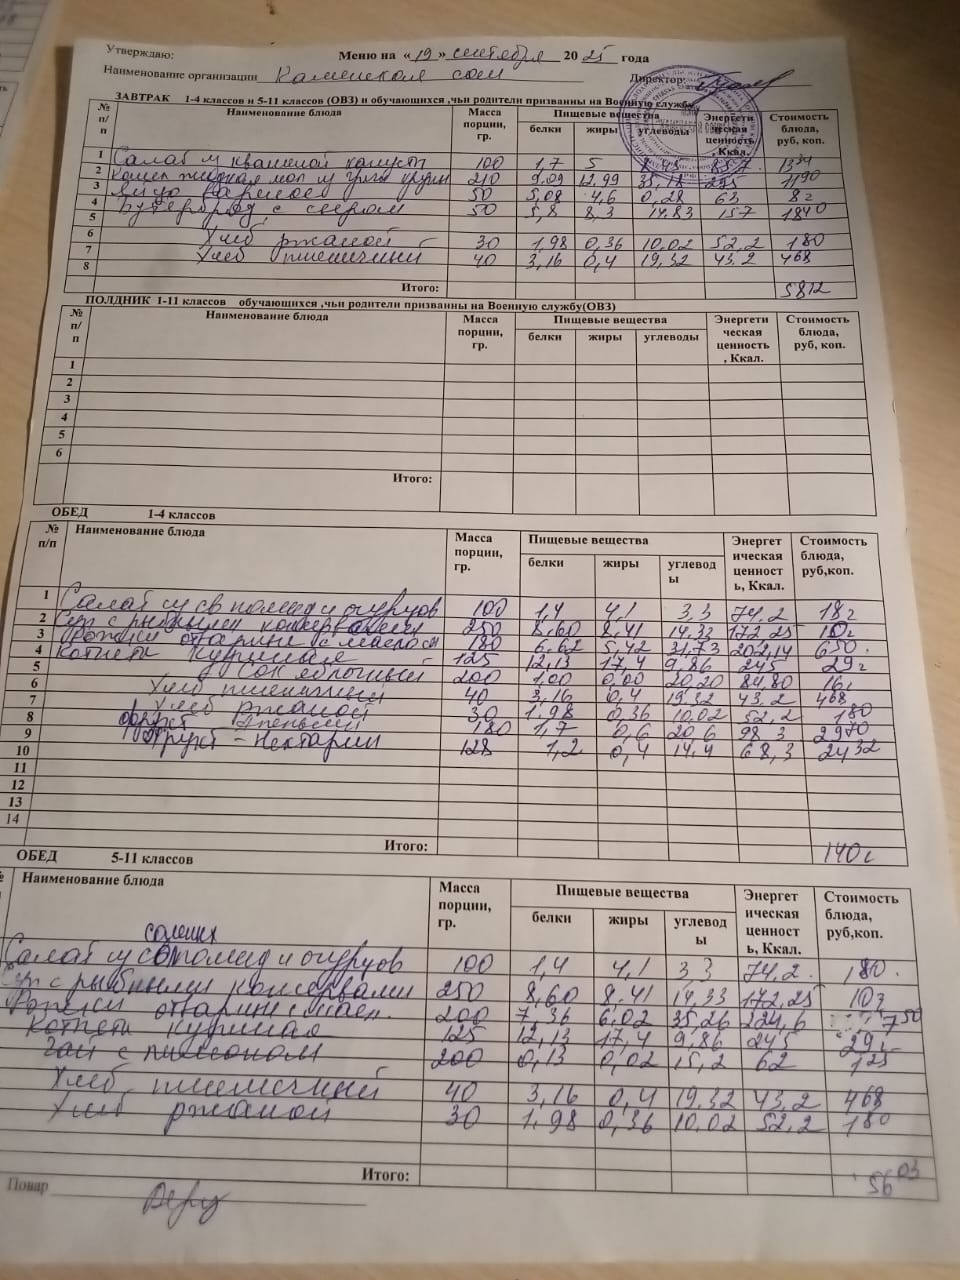 Утверждаю: Меню на « 19 » сентября 20 25 года
Наименование организации Каменская сош Директор:
ЗАВТРАК 1-4 классов и 5-11 классов (ОВЗ) и обучающихся ,чьи родители призванны на Военную службу
№ п/п Наименование блюда Масса порции, гр. Пищевые вещества Энергетическая ценность, Ккал. Стоимость блюда, руб, коп.
белки жиры углеводы
1 Салат из квашеной капусты 100 1,7 5 8,45 85,7 13 34
2 Каша жидкая мол из греч крупы 210 9,09 12,99 35,18 295 11,90
3 Яйцо вареное 50 5,08 4,6 0,28 63 8г
4 Бутерброд с сыром 50 5,8 8,3 14.83 157 1840
5
6 Хлеб ржаной 30 1,98 0,36 10,02 52,2 180
7 Хлеб пшеничный 40 3,16 0,4 19,32 43.2 468
8
Итого: 5812
ПОЛДНИК 1-11 классов обучающихся ,чьи родители призванны на Военную службу(ОВЗ)
№ п/п Наименование блюда Масса порции, гр. Пищевые вещества Энергетическая ценность, Ккал. Стоимость блюда, руб, коп.
белки жиры углеводы
1
2
3
4
5
6
Итого:
ОБЕД 1-4 классов
№ п/п Наименование блюда Масса порции, гр. Пищевые вещества Энергетическая ценность, Ккал. Стоимость блюда, руб,коп.
белки жиры углеводы
1 Салат из св помид и огурцов 100 1,4 4,1 3,3 74,2 18г
2 Суп с рыбными консервами 250 8,60 8,41 14,33 172,25 10г
3 отварные с маслом 180 6,62 5,42 31,73 202,14 650
4 Котлеты куриные 125 12,13 17,4 9,86 245 29г
5 Сок яблочный 200 1,00 0,00 20,20 84,80 16г
6 Хлеб пшеничный 40 3,16 0,4 19,32 43,2 468
7 Хлеб ржаной 30 1,98 0,36 10,02 52,2 180
8 фрукт апельсин 180 1,7 0,6 20,6 98,3 2970
9 фрукт - нектарин 128 1,2 0,4 14,4 68,3 2432
10
11
12
13
14
Итого: 140г
ОБЕД 5-11 классов
Наименование блюда Масса порции, гр. Пищевые вещества Энергетическая ценность, Ккал. Стоимость блюда, руб,коп.
белки жиры углеводы
соленых
Салат из помид и огурцов 100 1,4 4,1 3,3 74,2 180
Суп с рыбными консервами 250 8,60 8,41 14,33 172,25 10г
отварные с маслом 200 7,36 6,02 35,26 224,6 7 50
Котлеты куриная 125 12,13 17,4 9,86 245 29г
Чай с лимоном 200 0,13 0,02 15,2 62 125
Хлеб пшеничный 40 3,16 0,4 19,32 43,2 468
Хлеб ржаной 30 1,98 0,36 10.02 52,2 180
Итого: 56 03
Повар